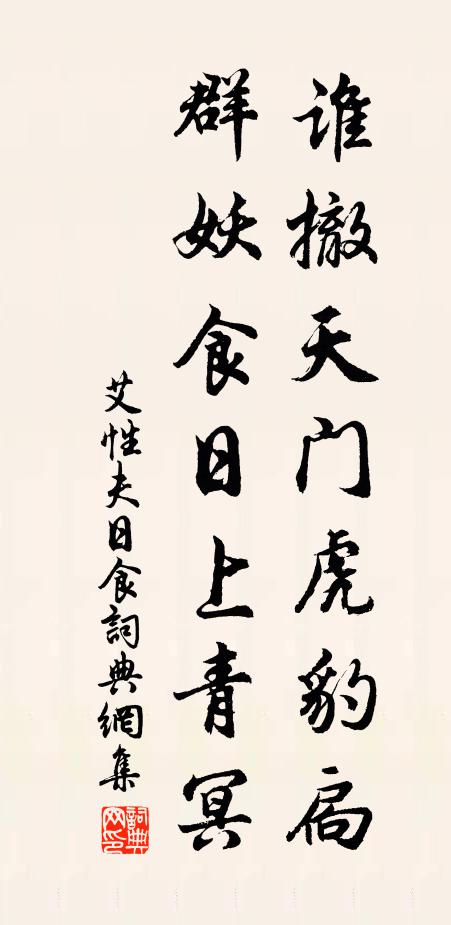 谁撤天门虎豹扃
群妖食日上青冥
艾性夫日食詞典網集
詞典網印